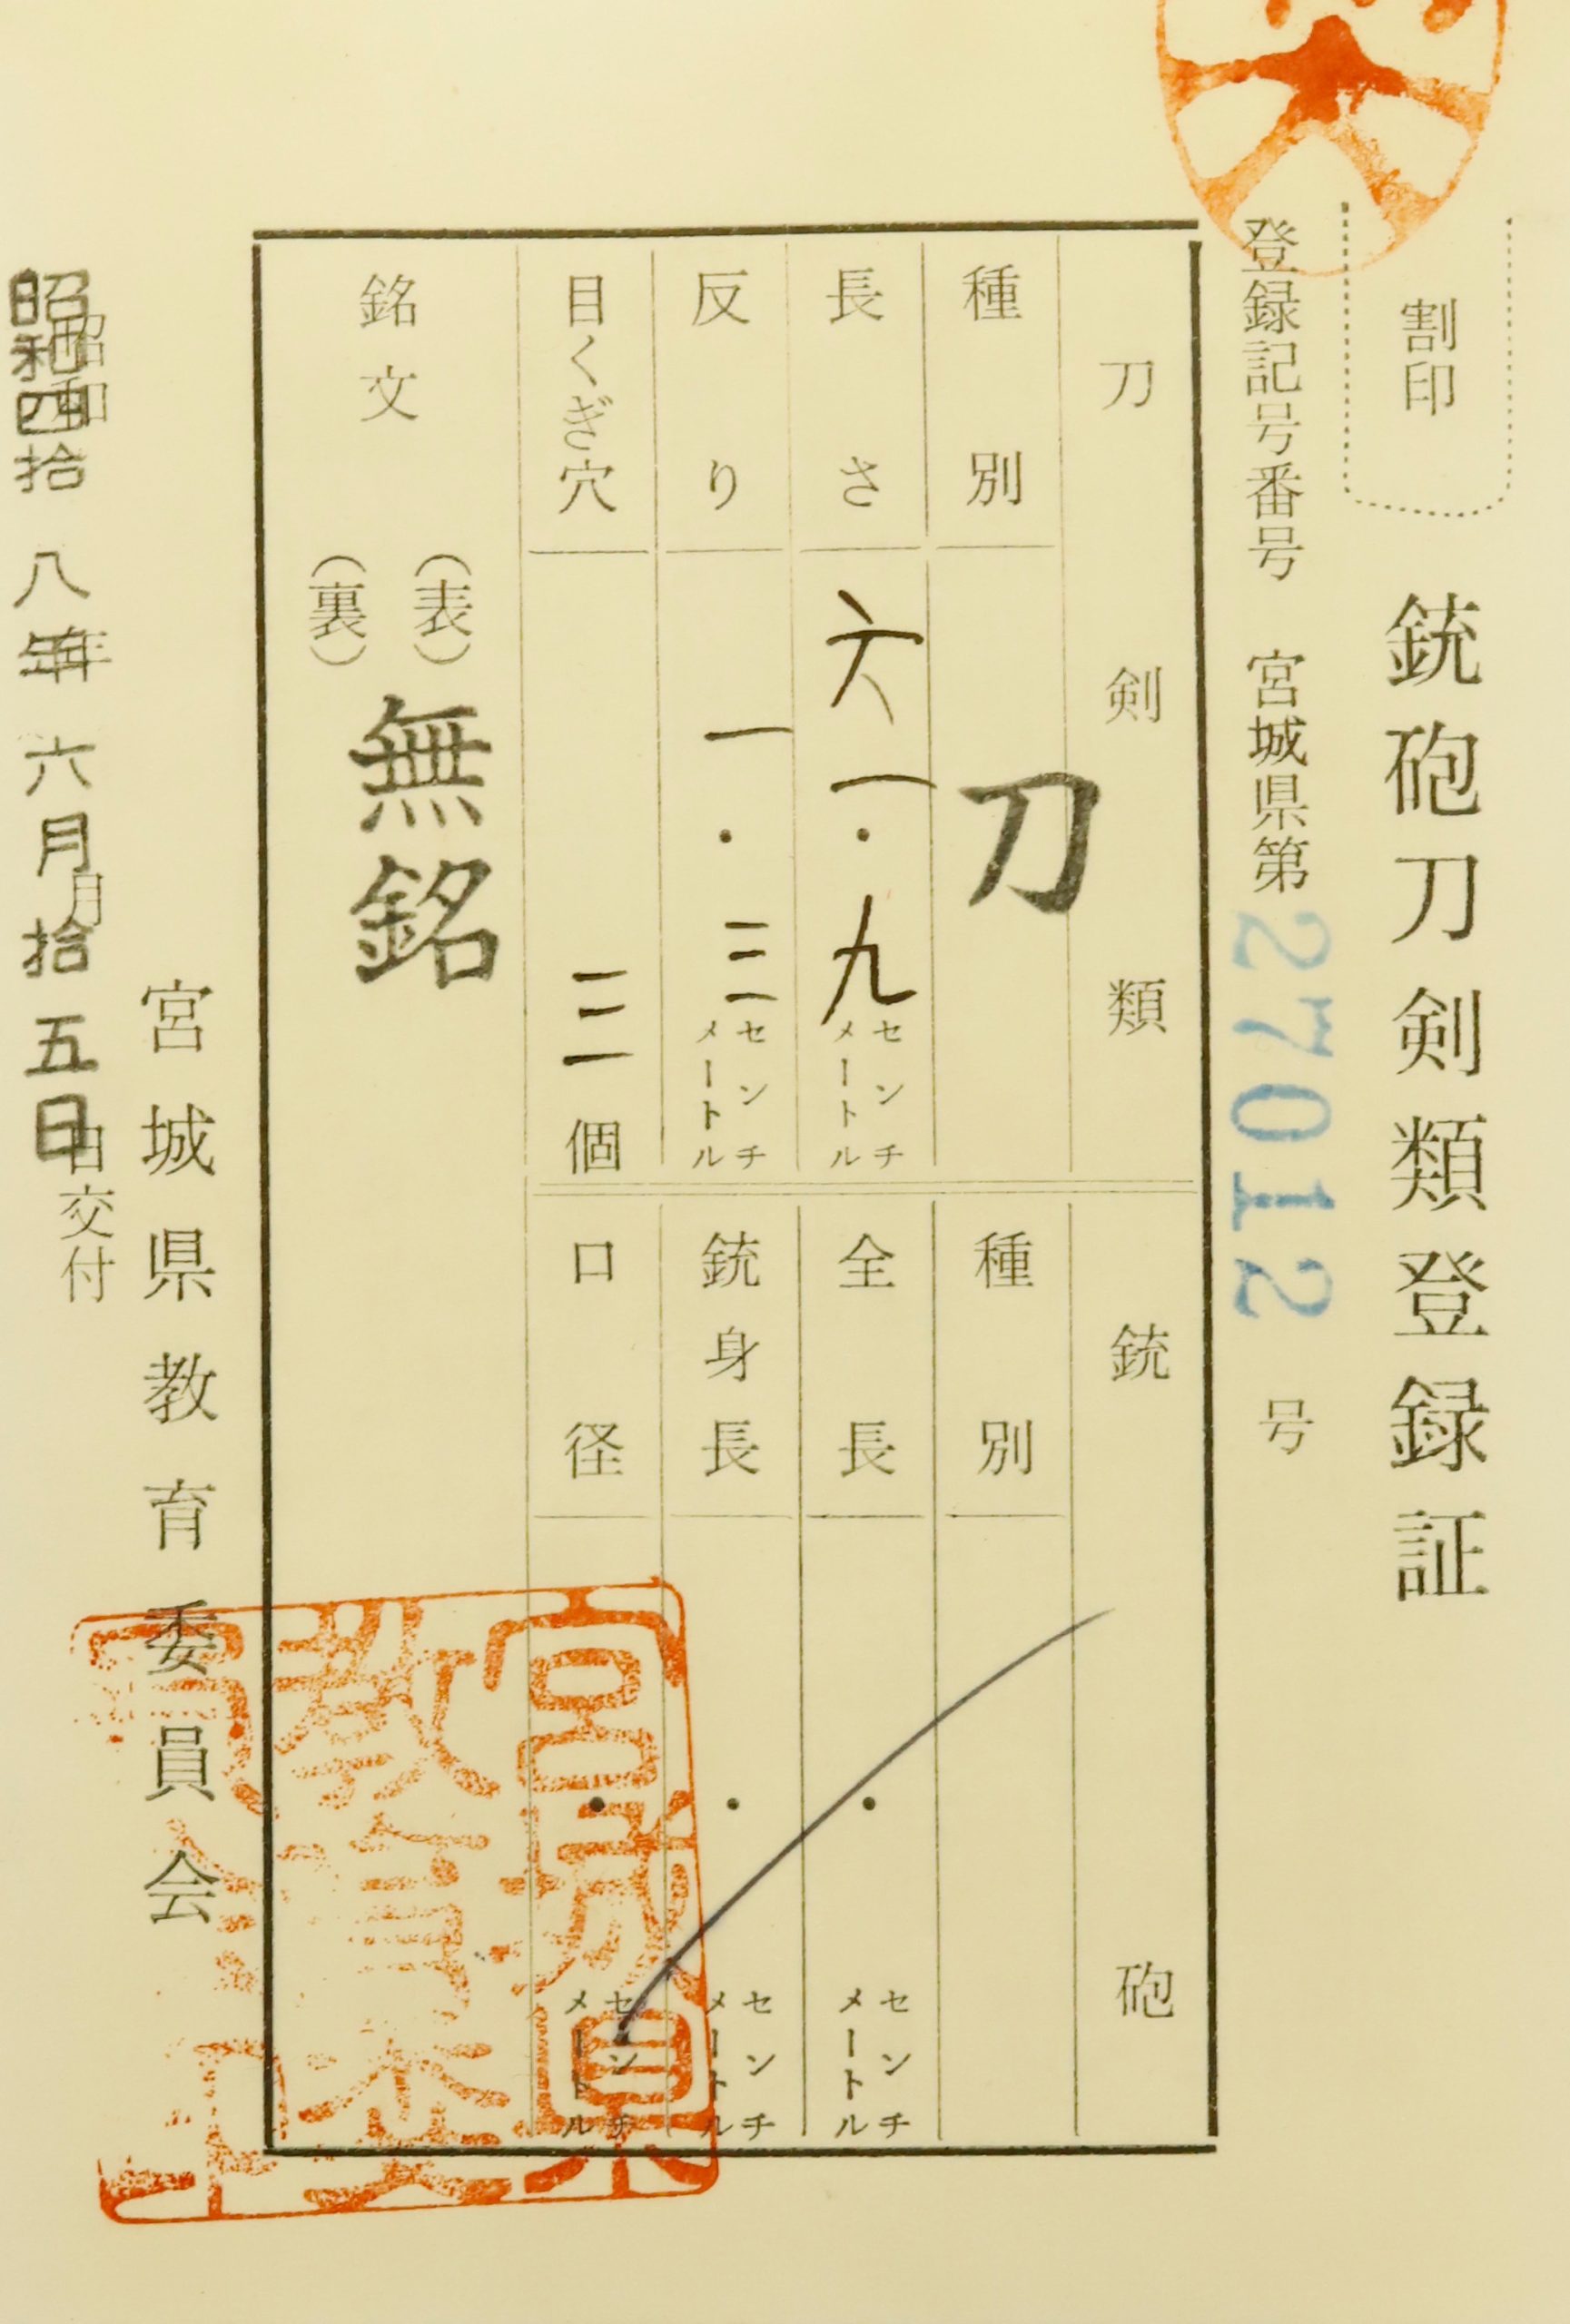 割印
銃砲刀剣類登録証
登録記号番号 宮城県第27012号
刀剣類
種別 刀
長さ 六一・九センチメートル
反り 一・三センチメートル
目くぎ穴 三個
銘文
(表)
(裏)
無銘
銃砲
種別
全長 ・センチメートル
銃身長 ・センチメートル
口径 ・センチメートル
宮城県教育委員会
昭和四拾八年六月拾五日交付
宮城県
教育委